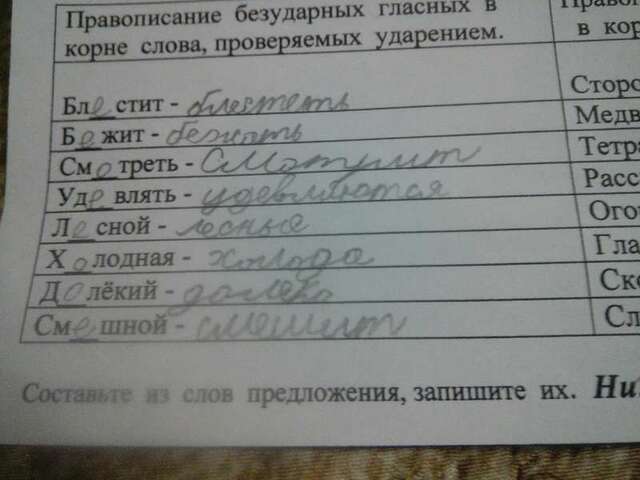 Правописание безударных гласных в
корне слова, проверяемых ударением.
в кор
Бле стит - блестеть
Сторо
Бежит - бежать
Медв
Смотреть - смотрит
Тетра
Удевлять - удевляются
Расс
Лесной - лесные
Ого
Холодная - холода
Гла
Долёкий - далеко
Ско
Смешной - смешит
Сл
Составьте из слов предложения, запишите их. Ни